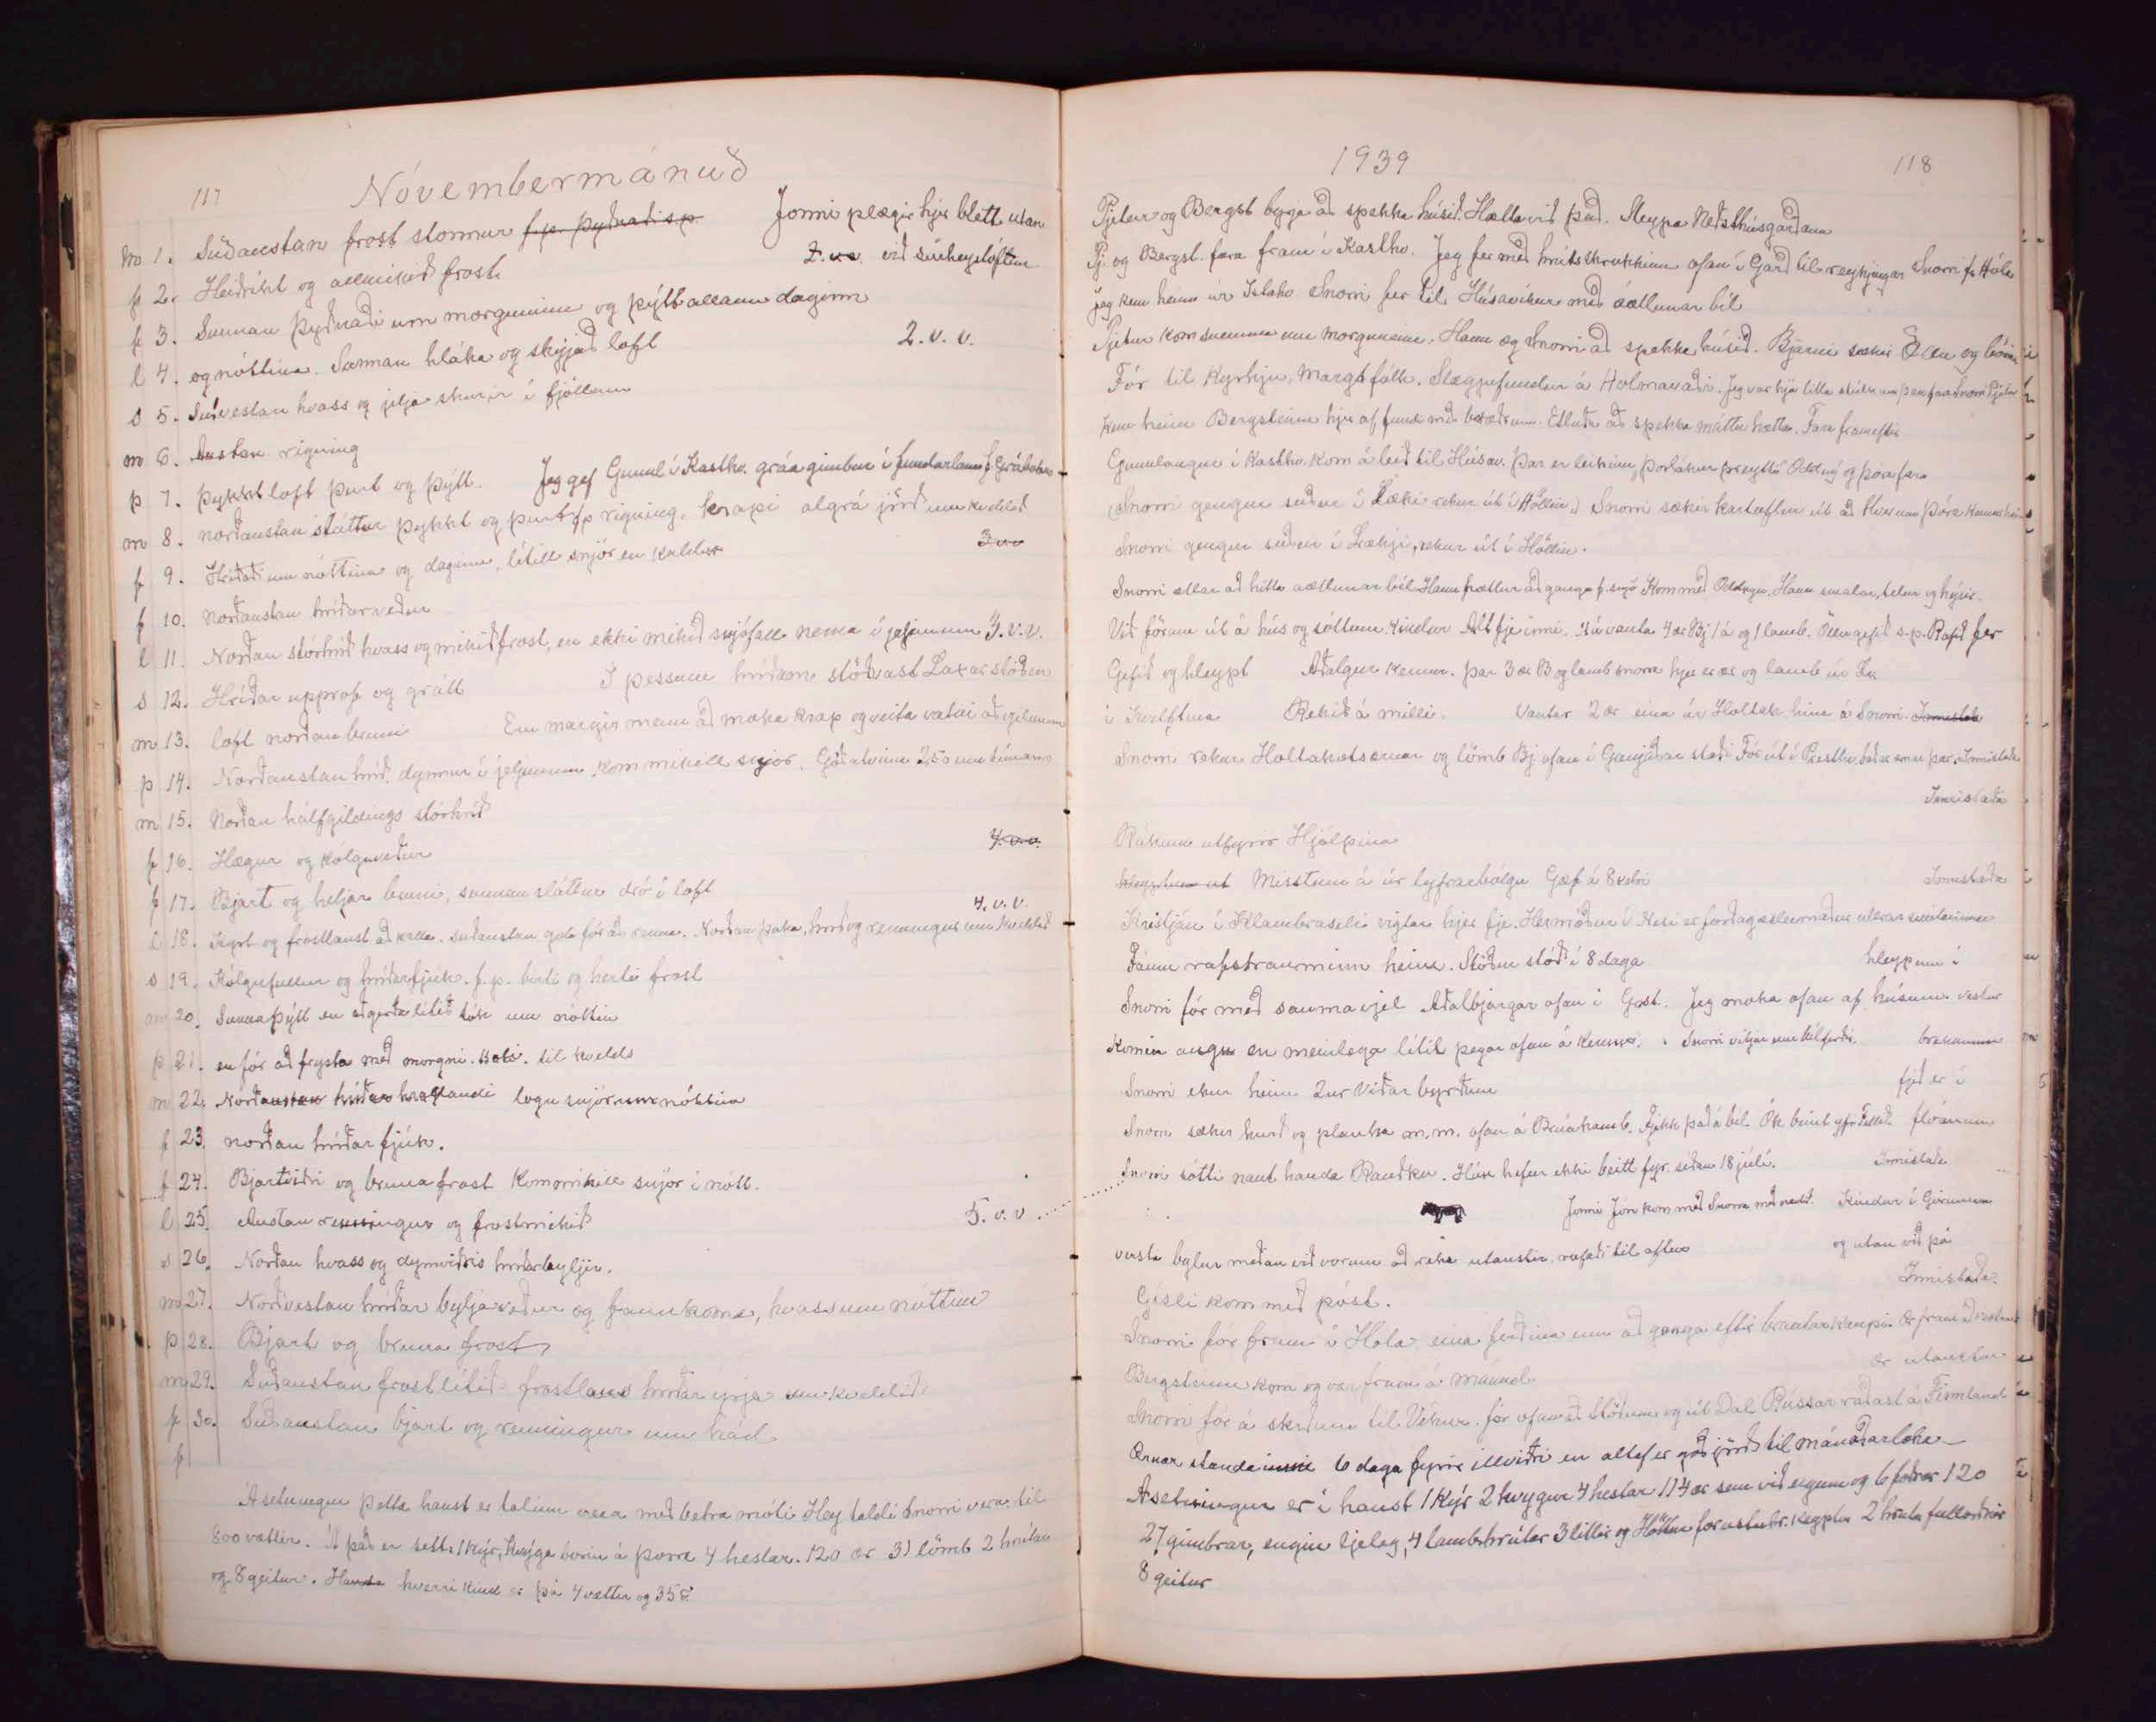 117
Nóvembermánuð
mv 1. Suðaustan frost stormur f.p. þyðnaði s.p. Jonni plægir hjer blett utan
f 2. Heiðríkt og allmikið frost 2. v.v. við súrheyslöftin
f 3. Sunnan þyðnaði um morguninn og þýtt allann daginn
l 4. og nóttina. Sunnan hláka og skýjað loft 2. v. v.
s 5. Suðvestan hvass og jelja skurir í fjöllum
m 6. Austan rigning
þ 7. þykktloft þurt og þýtt. Jeg gef Gunnl í Kasthv. gráa gimbur í fundarlaun f. Grábotna
m 8. norðaustan sláttur þykkt og þurt f.p rigning, krapi algrá jörð um kveldið
f 9. Hríðaði um nóttina og daginn, lítill snjór en kaldur 3 vv
f 10. Norðaustan hríðarveður
l 11. Norðan stórhríð hvass og mikið frost, en ekki mikið snjófall nema í jeljunum 3. v. v.
s 12. Hríðar upprof og grátt Í þessum hríðum stöðvast Laxárstöðin
m 13. loft norðan bruni Eru margir menn að moka krap og veita vatni að
þ 14. Norðaustan hríð, dymmur í jeljunum, kom mikill snjór. Góð atvinna 2,50 um tímann
m 15. Norðan hálfgildings stórhríð
f 16. Hægur og kólguveður 4. v.v.
f 17. Bjart og heljar bruni, sunnan sláttur dró í loft
l 18. Kyrt og frostlaust að kalla. suðaustan gola fór að renna. Norðan þoka, hríð og renningur um kveldið 4. v. v.
s 19. Kólgufullur og hríðarfjúk. f.p. birti og herti frost
m 20. Sunnan þýtt en aðgerðalítið tók um nóttin
þ 21. en fór að frysta með morgni. til kvelds
m 22. Norðaustan hríðar logn snjór um nóttina
f 23. norðan hríðar fjúk.
f 24. Bjartviðri og bruna frost Kom mikill snjór í nótt.
l 25. Austan renningur og frostmikið 5. v. v
s 26. Norðan hvass og dymviðris hríðarbyljir.
m 27. Norðvestan hríðar bylja veður og fannkoma, hvass um nóttina
þ 28. Bjart og bruna frost
m 29. Suðaustan frostlítið frostlaus hríðar ýrja um kveldið
f 30. Suðaustan bjart og renningur um kveld
f
Ásetningur þetta haust er talinn vera með betra móti Hey taldi Snorri vera til
800 vættir. Á það er sett 1 kýr, kvýga borin á þorra 4 hestar. 120 ær 31 lömb 2 hrútar
og 8 geitur. Handa hverri kind er þá 4 vættir og 35 ℔.
1939
118
Pjetur og Bergst byrja að spekka húsið. Hætta við það. Steypa Neðsthúsgarðana
Pj. og Bergst. fara fram í Kasthv. Jeg fer með hrútskrokkinn ofan í Garð til reykingar Snorri fr Hóla
Jeg kem heim úr Ystahv Snorri fer til Húsavíkur með áætlunar bíl
Pjetur kom snemma um morguninn. Hann og Snorri að spekka húsið. Bjarni sækir Ellu og
Fór til Kyrkju, margt fólk. Slægjufundur á Hólmavaði. Jeg var hjá litlu stúlkum þau fara Snorri Pjetur
kemur heim Bergsteinn hjer af fundi með bræðrum. Ætluðu að spekka máttu hætta. Fara frameftir
Gunnlaugur í Kasthv. kom á leið til Húsav. Þar er leikinn Þorlákur þreytti Oddný og Þóra fara
(Snorri gengur suður í Læki rekur út í Höllin.) Snorri sækir kartöflur út að Hverum Þóra kemur heim
Snorri gengur suður í Lækji, rekur út í Höllin.
Snorri ætlar að hitta áætlunar bíl. Hann hættur að ganga f. snjó Kom með Oddnyu. Hann smalar, telur og hýsir.
Við fórum út á hús og sóttum 4 kindur Allt fje inni. Nú vanta 4 ær Bj 1 á og 1 lamb. Öllu gefið s.p. Rafið fer
Gefið og hleypt Aðalgeir kemur. þar 3 ær B og lamb Snorra hjer er ær og lamb úr La
í Kvelftina Rekið á milli. Vantar 2 ær eina úr Holtak hina á Snorri Innistaða
Snorri rekur Holtakotsærnar og lömb Bj. ofan í Grenjaðarstaði Fór út í Presthv. báðar ærnar þar. Innistaða
Innistaða
Rákum útfyrir Hjálpina
Hleyptum út Misstum á úr lyfraebólgu Gæf á 8 vetri Innistaða
Kristján í Klambraseli vigtar hjer fje. Hermóður í Nesi er forðagæslumaður allrar sveitarinnar
Fáum rafstrauminn heim. Stöðin stóð í 8 daga hleypum í
Snorri fór með saumavjel Aðalbjargar ofan í Grst. Jeg moka ofan af húsum vestur
Komin augu en meinlega lítil þegar ofan á kemur. Snorri vitjar um bílferðir. brekunum
Snorri ekur heim 2ur viðar byrðum fjeð er í
Snorri sækir hurð og planka m.m. ofan á Brúarkamb. Fjekk það á bíl. Ók beint yfir dalið. flóanum
Snorri sótti naut handa Rauðku. Hún hefur ekki beitt fyr. síðan 18 júlí. Innistaða
Jonni Jón kom með Snorra með nautið. Kindur í Girunum
versti bylur meðan við vorum að reka utaustir, rofaði til aftur og utan við þá
Gísli kom með póst. Innistaða.
Snorri fór fram í Hóla, eina ferðina um að ganga eftir brautarkaupi. Ær fram að vestan
Bergsteinn kom og var fram á mánud. ær utaustur
Snorri fór á skíðum til Víkur. fór ofan að Stöðum og út Dal Rússar ráðast á Finnland
Ærnar standa inni 6 daga fyrir illviðri en alltaf er góð jörð til mánaðarloka
Ásetningur er í haust 1 kýr 2 kvygur 4 hestar 114 ær sem við eigum og 6 120
27 gimbrar, engin ljeleg, 4 lambhrútar 3 litlir og Höttur forustuhr. keyptur 2 hrútar fullorðnir
8 geitur